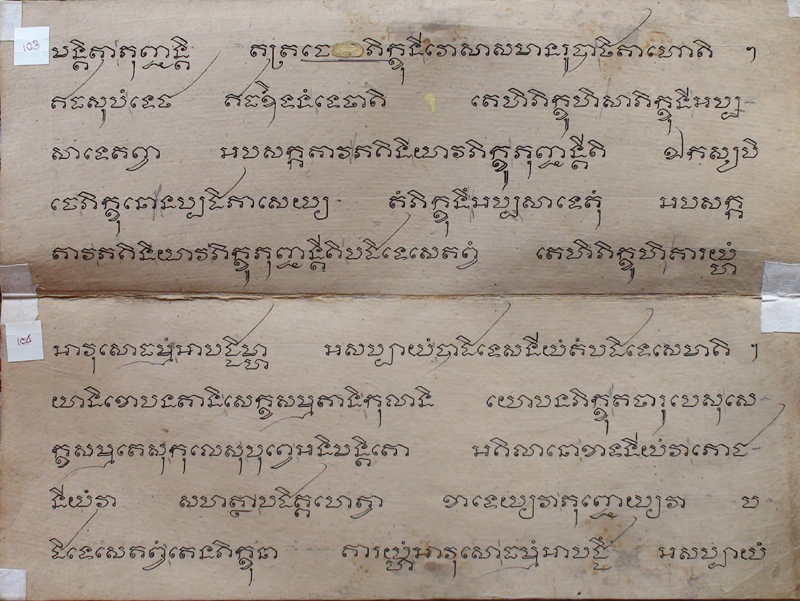 103
មន្តិតាភុញ្ជន្តិ តត្រចេភិក្ខុនីវោសាសមានរូបាឋិតាហោតិ ។
ឥធសូបំទេថ ឥធឱទនំទេថាតិ តេហិភិក្ខូហិសាភិក្ខុនីអប្ប-
សាទេតព្វា អបសក្កតាវភគិនិយាវភិក្ខូភុញ្ជន្តីតិ ឯកស្សបិ
ចេភិក្ខុនោនប្បដិភាសេយ្យ តំភិក្ខុនឹអប្បសាទេតុំ អបសក្ក
តាវភគិនិយាវភិក្ខូភុញ្ជន្តីតិបដិទេសេតព្វំ តេហិភិក្ខូហិគារយ្ហំ
104
អាវុសោធម្មំអាបជ្ជិម្ហា អសប្បាយំបាដិទេសនីយំតំបដិទេសេមាតិ ។
យានិខោបនតានិសេក្ខសម្មតានិកុលានិ យោបនភិក្ខុតថារូបេសុសេ-
ក្ខសម្មតេសុកុលេសុបុព្វេអនិមន្តិតោ អគិលានោខាទនីយំវាភោជ-
នីយំវា សហត្ថាបដិគ្គហេត្វា ខាទេយ្យវាភុញ្ជេយ្យវា ប
ដិទេសេតព្វំតេនភិក្ខុនា គារយ្ហំអាវុសោធម្មំអាបជ្ជឹ អសប្បាយំ